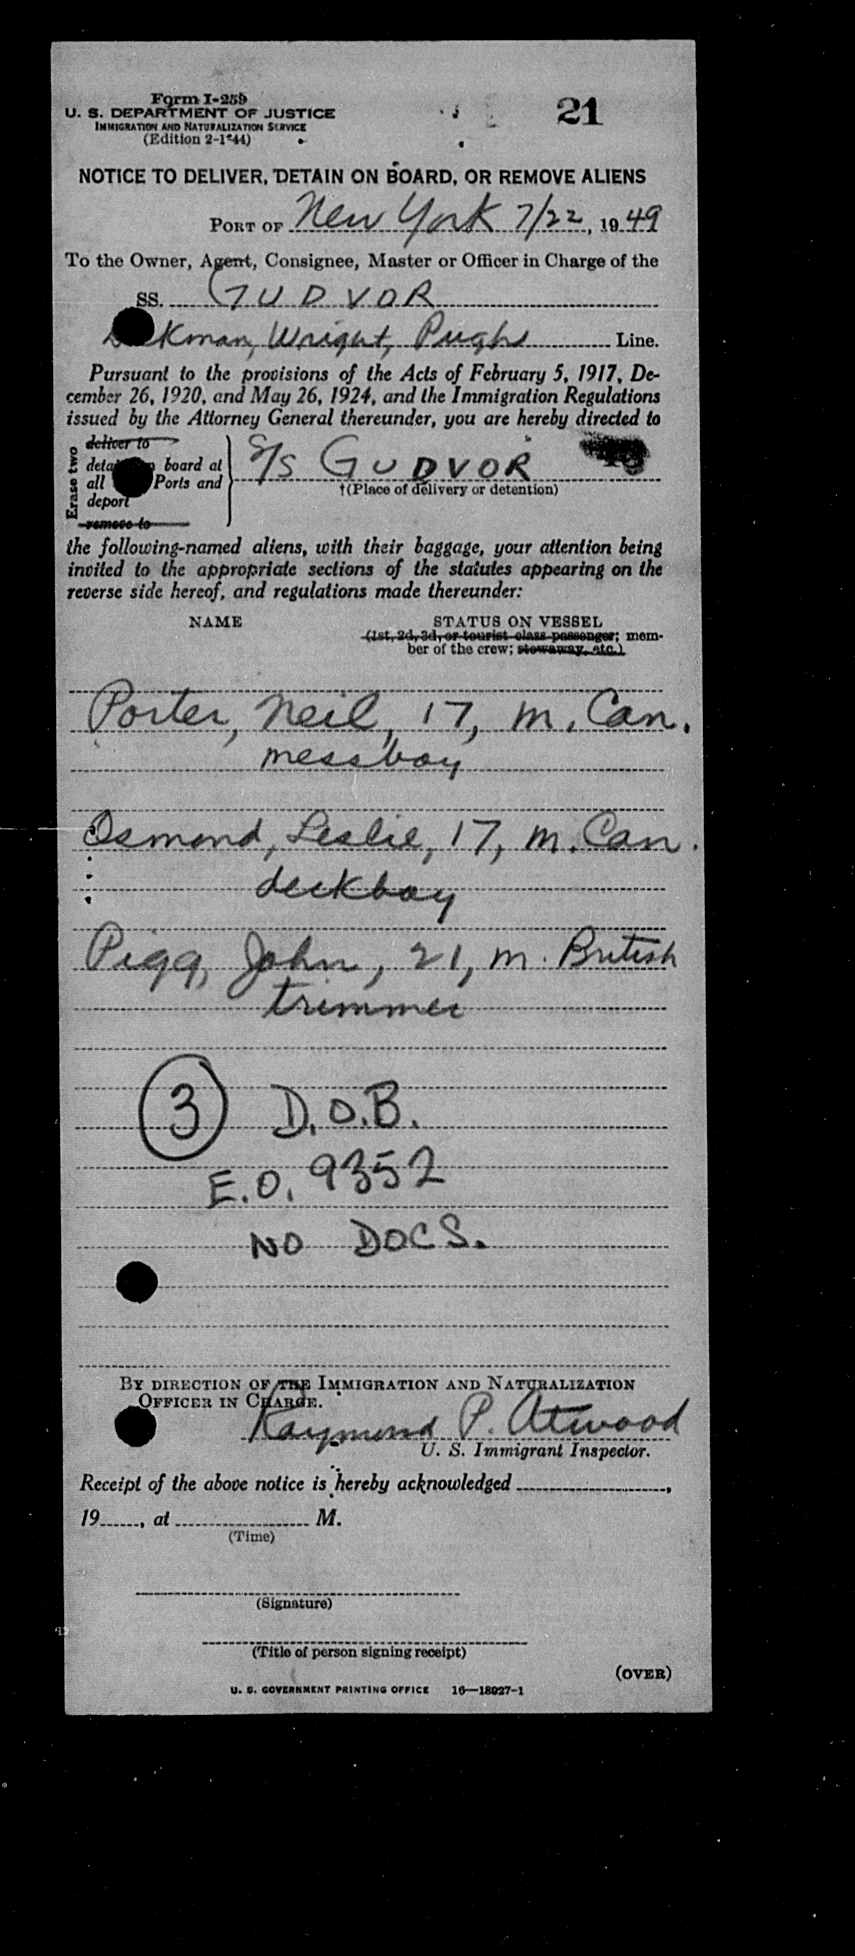 Form I-259
21
U. S. DEPARTMENT OF JUSTICE
IMMIGRATION AND NATURALIZATION SERVICE
(Edition 2-1-44)
NOTICE TO DELIVER, DETAIN ON BOARD, OR REMOVE ALIENS
PORT OF New York 7/22, 1949
To the Owner, Agent, Consignee, Master or Officer in Charge of the
SS. GUDVOR
Wright, Pugh Line.
Pursuant to the provisions of the Acts of February 5, 1917, De-
cember 26, 1920, and May 26, 1924, and the Immigration Regulations
issued by the Attorney General thereunder, you are hereby directed to
Erase two
deliver to
board at
all Ports and
deport
remove to
S/S GUDVOR
†(Place of delivery or detention)
the following-named aliens, with their baggage, your attention being
invited to the appropriate sections of the statutes appearing on the
reverse side hereof, and regulations made thereunder:
NAME STATUS ON VESSEL
(1st, 2d, 3d, or tourist class passenger; mem-
ber of the crew; stowaway, etc.)
Porter, Neil, 17, m. Can.
messboy
Osmond, Leslie, 17, m. Can.
deckboy
Pigg, John, 21, m. British
trimmer
3 D.O.B.
E.O. 9352
NO DOCS.
BY DIRECTION OF THE IMMIGRATION AND NATURALIZATION
OFFICER IN CHARGE.
Raymond P. Atwood
U. S. Immigrant Inspector.
Receipt of the above notice is hereby acknowledged
19, at M.
(Time)
(Signature)
(Title of person signing receipt)
(OVER)
U. S. GOVERNMENT PRINTING OFFICE 16—18927-1